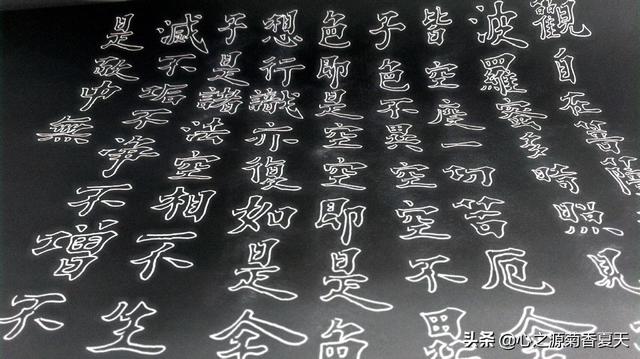 觀自在菩薩
波羅蜜多時照見
皆空度一切苦厄舍
子色不異空空不異
色即是空空即是色
想行識亦復如是舍
子是諸法空相不生
滅不垢不淨不增不
是故中無
头条 @心之源菊香夏天